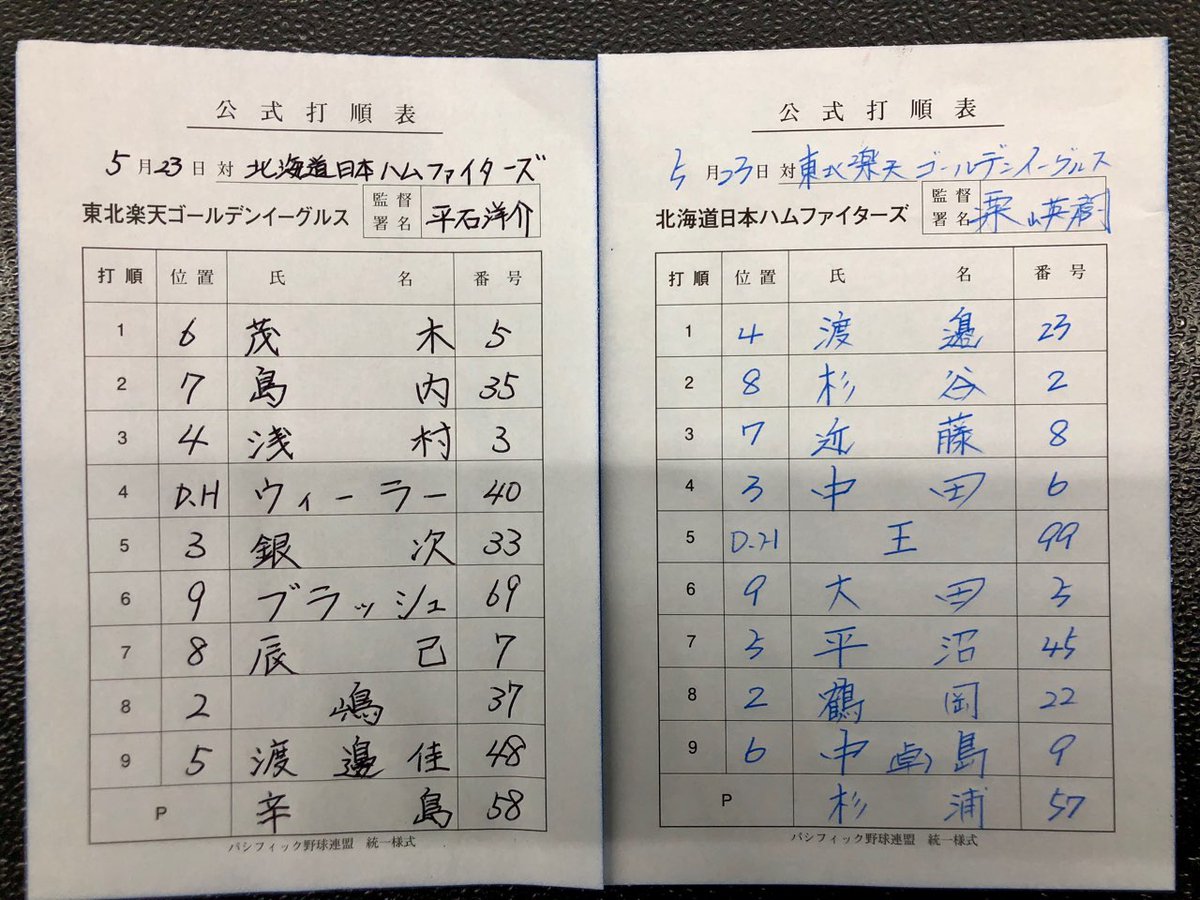 公式打順表
5月23日 対 北海道日本ハムファイターズ
東北楽天ゴールデンイーグルス 監督署名 平石洋介
打順 位置 氏名 番号
1 6 茂木 5
2 7 島内 35
3 4 浅村 3
4 D.H ウィーラー 40
5 3 銀次 33
6 9 ブラッシュ 69
7 8 辰己 7
8 2 嶋 37
9 5 渡邊佳 48
P 辛島 58
パシフィック野球連盟 統一様式
公式打順表
5月23日 対 東北楽天ゴールデンイーグルス
北海道日本ハムファイターズ 監督署名 栗山英樹
打順 位置 氏名 番号
1 4 渡邉 23
2 8 杉谷 2
3 7 近藤 8
4 3 中田 6
5 D.H 王 99
6 9 大田 5
7 5 平沼 45
8 2 鶴岡 22
9 6 中卓島 9
P 杉浦 57
パシフィック野球連盟 統一様式